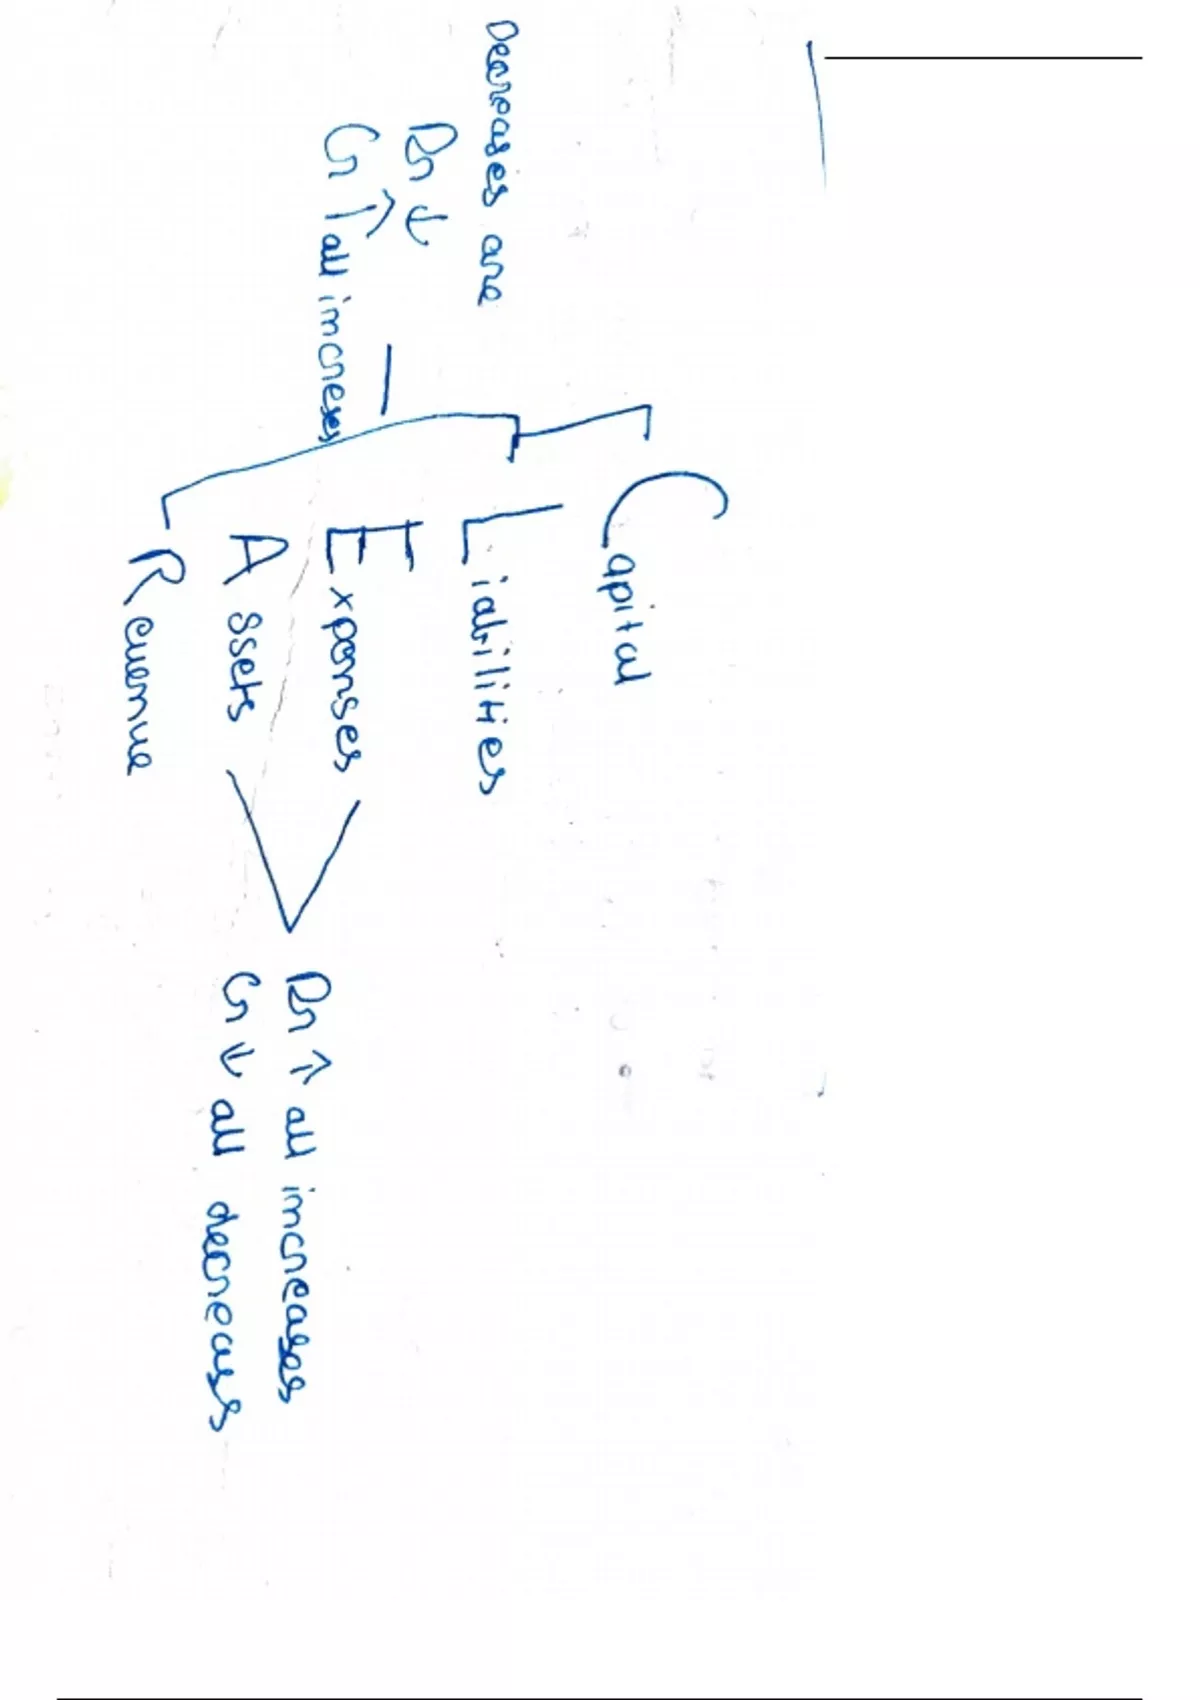 Capital
Liabilities
Expenses
Assets
Revenue
Decreases are
Dr ↓
Cr ↑ all increses
Dr ↑ all increases
Cr ↓ all decreases